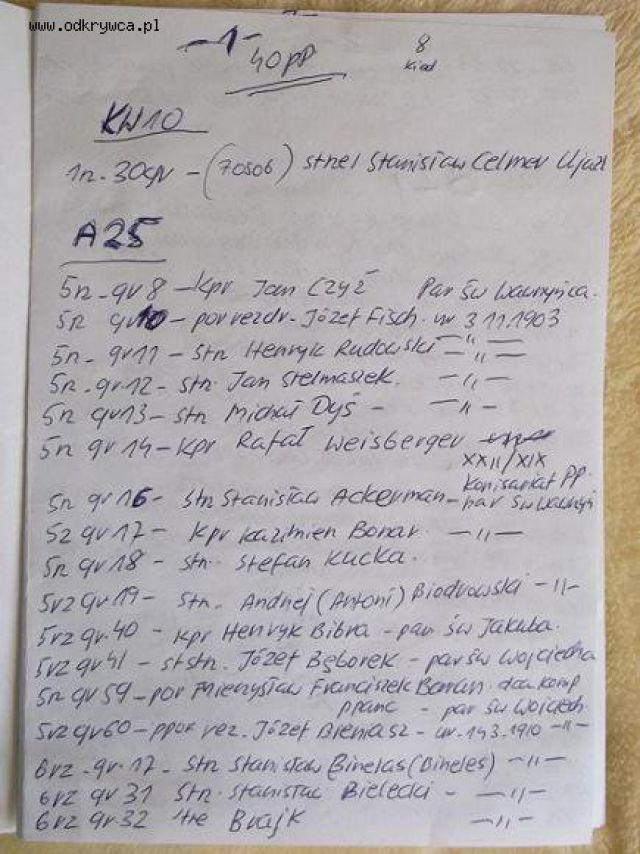 www.odkrywca.pl
-1-
40pp
8
KW10
1n. 30qv - (70sob) strzel Stanisław Celmer Ujazd
A25
5rz - gr 8 - kpr Jan Czyż Par św Wawrzyńca.
5rz gr 10 - por rez dr. Józef Fisch. ur 3.11.1903
5rz - gr 11 - Str Henryk Rudowski - " -
5rz - gr. 12 - str. Jan Stelmasiek. - " -
5rz gr 13 - str Michał Dyś - - " -
5rz gr 14 - kpr Rafał Weisberger
XXII/XIX
Komisariat PP.
5rz gr 16 - Str Stanisław Ackerman - par św Wawrzyń
5rz gr 17 - kpr Kazimierz Bonar. - " -
5rz gr 18 - str. Stefan Kucka.
5rz gr 19 - str. Andrzej (Antoni) Biodrowski - " -
5rz gr. 40 - kpr Henryk Bibra - par. św Jakuba.
5rz gr 41 - st str. Józef Bęborek - par św Wojciecha
5rz gr 59 - por Mieczysław Franciszek Boman. dca komp
ppanc - par św Wojciech.
5rz gr 60 - ppor rez. Józef Bieniasz - ur. 14.3.1910 - " -
6rz - gr. 17 - str Stanisław Binelas (Bineles) - " -
6rz gr 31 str. Stanisław Bielecki - - " -
6rz gr. 32 Brajk - " -